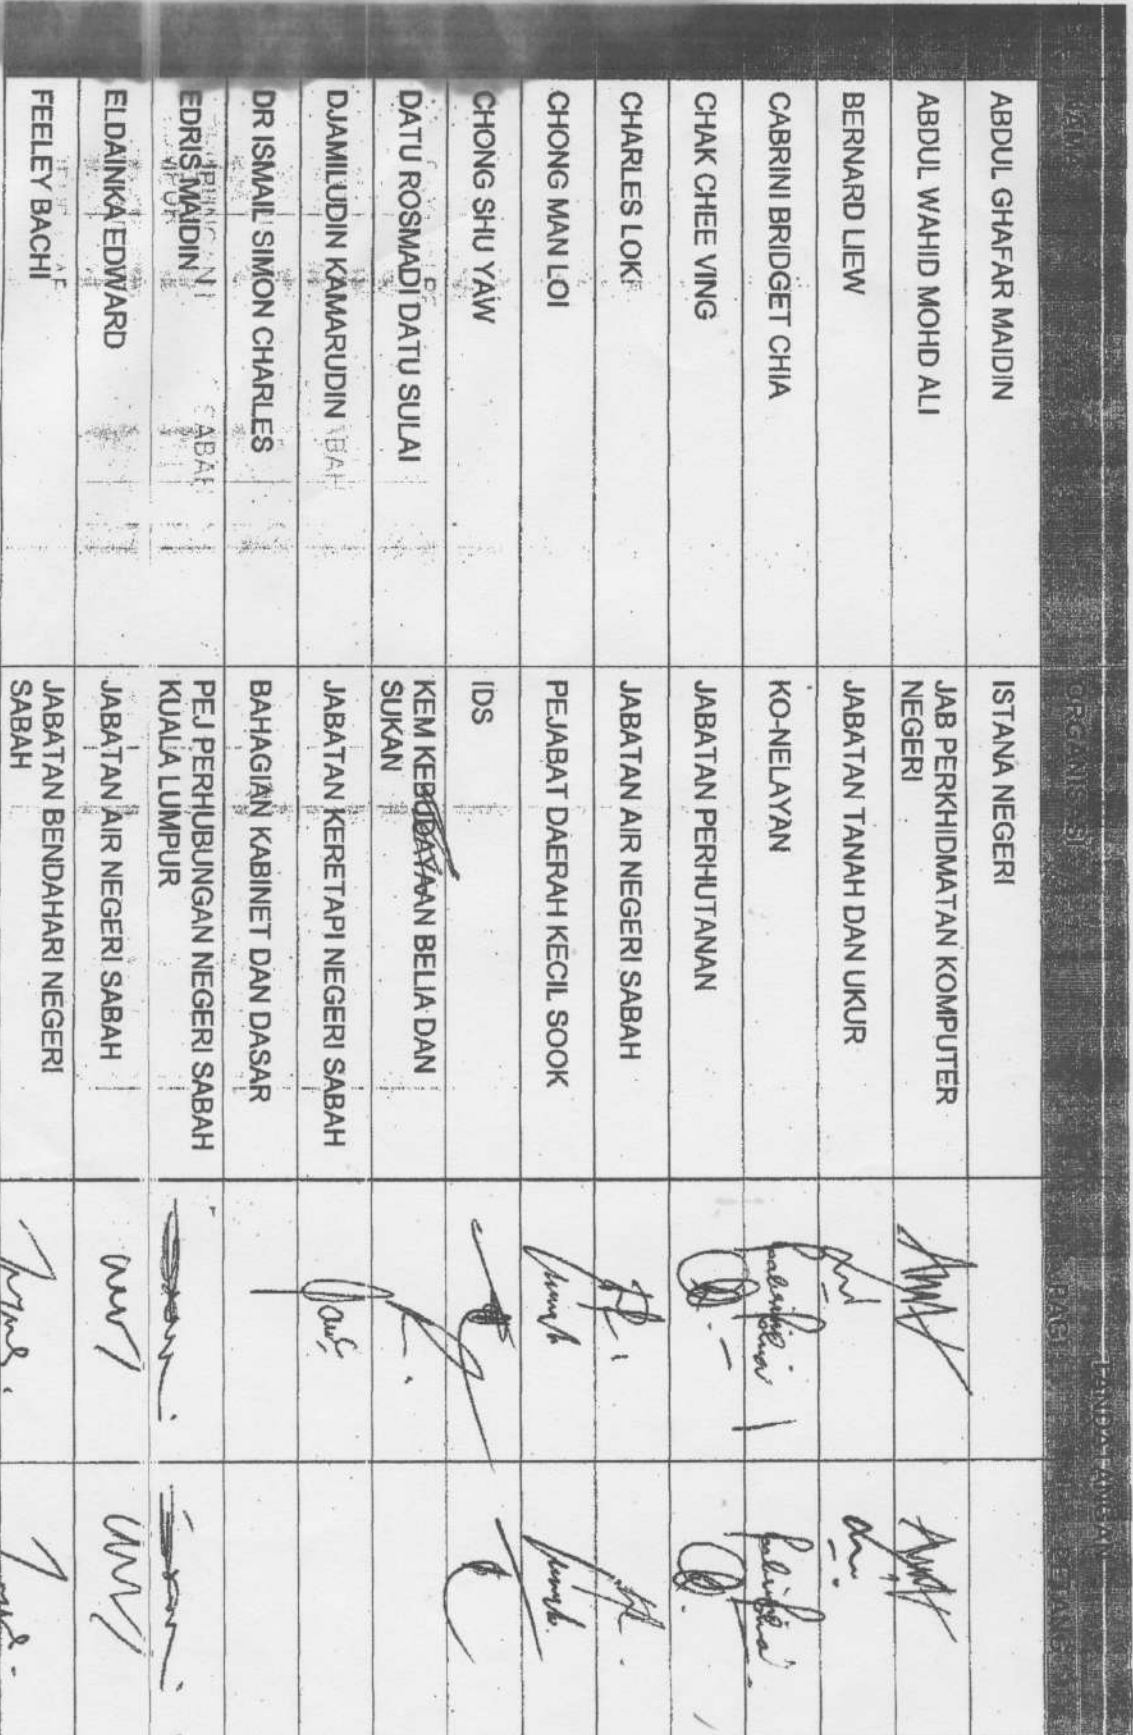 NAMA ORGANISASI TANDATANGAN
PAGI PETANG
ABDUL GHAFAR MAIDIN ISTANA NEGERI
ABDUL WAHID MOHD ALI JAB PERKHIDMATAN KOMPUTER
NEGERI
BERNARD LIEW JABATAN TANAH DAN UKUR
CABRINI BRIDGET CHIA KO-NELAYAN
CHAK CHEE VING JABATAN PERHUTANAN
CHARLES LOKI JABATAN AIR NEGERI SABAH
CHONG MAN LOI PEJABAT DAERAH KECIL SOOK
CHONG SHU YAW IDS
DATU ROSMADI DATU SULAI KEM KEBUDAYAAN BELIA DAN
SUKAN
DJAMILUDIN KAMARUDIN JABATAN KERETAPI NEGERI SABAH
DR ISMAIL SIMON CHARLES BAHAGIAN KABINET DAN DASAR
EDRIS MAIDIN PEJ PERHUBUNGAN NEGERI SABAH
KUALA LUMPUR
ELDAINKA EDWARD JABATAN AIR NEGERI SABAH
FEELEY BACHI JABATAN BENDAHARI NEGERI
SABAH